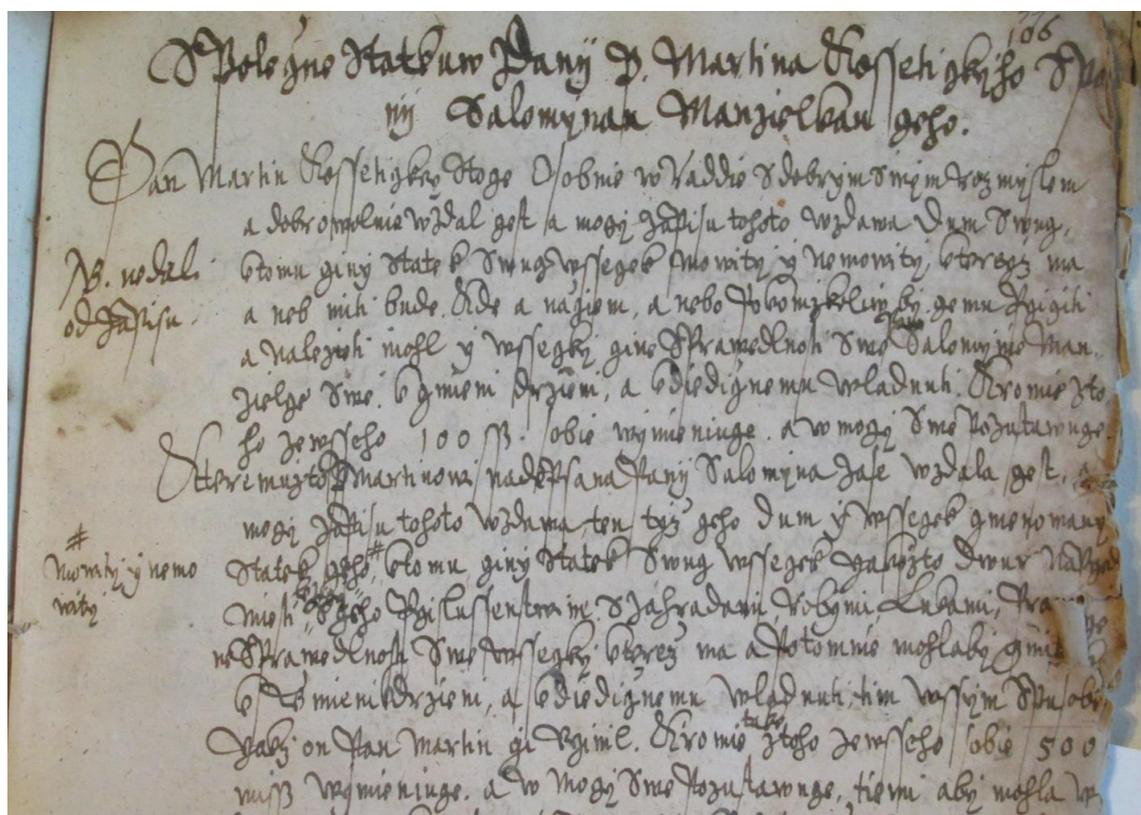 106
Spolegne Statkuw Danij P. Martina Rossetigkyho Spa
nij Salomynau Manzielkau geho.
Pan Martin Rossetigky Stoge Osobnie w Raddie S dobrym Swym rozmyslem
a dobrowolnie wzdal gest a mogy Zapisu tohoto wzdawa Dum Swug,
NB. nedal
od Zapisu
ktomu giny Statek Swug wssegek mowity y nemowity, kterez ma
a neb miti bude. kde a nagiem, a nebo by gemu Prigiti
a nalezeti mohl y wssegky gine Sprawedlnosti Swe Salomynie Man
zielge Swe. k gmieni drzieni, a kdiedignemu wladnuti. Kromie zto
ho ze wsseho 100 ss. sobie wymieniuge. a w mogy Swe Pozustawuge.
Kteremuzto P. Martinowi nadepsana Pany Salomyna zase wzdala gest, a
mogy Zapisu tohoto wzdawa ten tyz geho Dum y wssegek gmenowany
#
mowity y nemo
wity
Statek geho, # ktomu giny Statek Swug wssegek yakozto Dwur
miesti geho Przislussenstwim. S zahradami, Robymi Lukami,
ne Sprawedlnosti Swe wssegky kterez ma a Potomnie mohlaby gmiti
k gmieni drzieni, a kdiedignemu wladnuti, tim wssym Spusobe
yakz on Pan Martin gi Uginil. Kromie take ztoho ze wsseho sobie 500
miss wymieniuge. a w Mogy Swe Pozustawuge, tiemi aby mohla